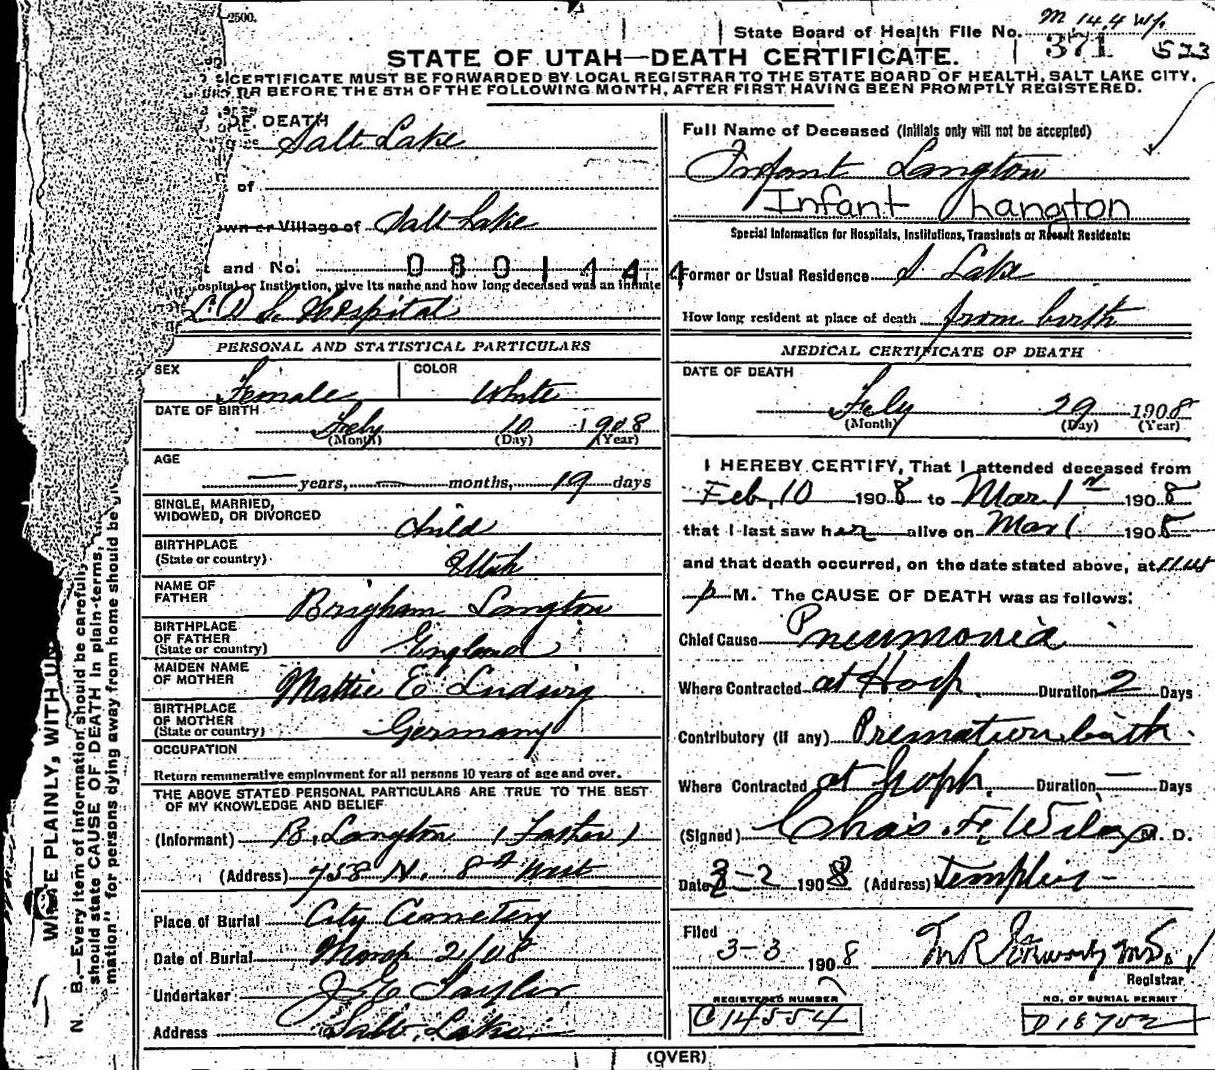 2500.
M 144 Wf.
State Board of Health File No. 371 533
STATE OF UTAH—DEATH CERTIFICATE.
CERTIFICATE MUST BE FORWARDED BY LOCAL REGISTRAR TO THE STATE BOARD OF HEALTH, SALT LAKE CITY,
OR BEFORE THE 5TH OF THE FOLLOWING MONTH, AFTER FIRST HAVING BEEN PROMPTLY REGISTERED.
OF DEATH
Salt Lake
of
own or Village of Salt Lake
t and No. 0801444
ospital or Institution, give its name and how long deceased was an inmate
L. D. S. Hospital
PERSONAL AND STATISTICAL PARTICULARS
SEX Female COLOR White
DATE OF BIRTH Feby 10 1908
(Month) (Day) (Year)
AGE
— years, — months, 19 days
SINGLE, MARRIED,
WIDOWED, OR DIVORCED Child
BIRTHPLACE
(State or country) Utah
NAME OF
FATHER Brigham Langton
BIRTHPLACE
OF FATHER
(State or country) England
MAIDEN NAME
OF MOTHER Mattie E Ludwig
BIRTHPLACE
OF MOTHER
(State or country) Germany
OCCUPATION
Return remunerative employment for all persons 10 years of age and over.
THE ABOVE STATED PERSONAL PARTICULARS ARE TRUE TO THE BEST
OF MY KNOWLEDGE AND BELIEF
(Informant) B. Langton (Father)
(Address) 758 N. 8th West
Place of Burial City Cemetery
Date of Burial March 2/08
Undertaker J E Taylor
Address Salt Lake
Full Name of Deceased (Initials only will not be accepted)
Infant Langton
Infant Langton
Special Information for Hospitals, Institutions, Transients or Recent Residents:
Former or Usual Residence S Lake
How long resident at place of death from birth
MEDICAL CERTIFICATE OF DEATH
DATE OF DEATH
Feby 29 1908
(Month) (Day) (Year)
I HEREBY CERTIFY, That I attended deceased from
Feb, 10 1908 to Mar. 1st 1908
that I last saw her alive on Mar 1 1908
and that death occurred, on the date stated above, at 11.45
p M. The CAUSE OF DEATH was as follows:
Chief Cause Pneumonia
Where Contracted at Hosp. Duration 2 Days
Contributory (if any) Premature birth.
Where Contracted at hosph. Duration — Days
(Signed) Chas. F. Wilcox M. D.
Date 3-2 1908 (Address) Templeton
Filed
3-3 1908 M.D.
Registrar
REGISTERED NUMBER
C14554
NO. OF BURIAL PERMIT
D18702
(OVER)
WRITE PLAINLY, WITH UN
N. B.—Every item of information should be carefully
should state CAUSE OF DEATH in plain terms,
mation" for persons dying away from home should be